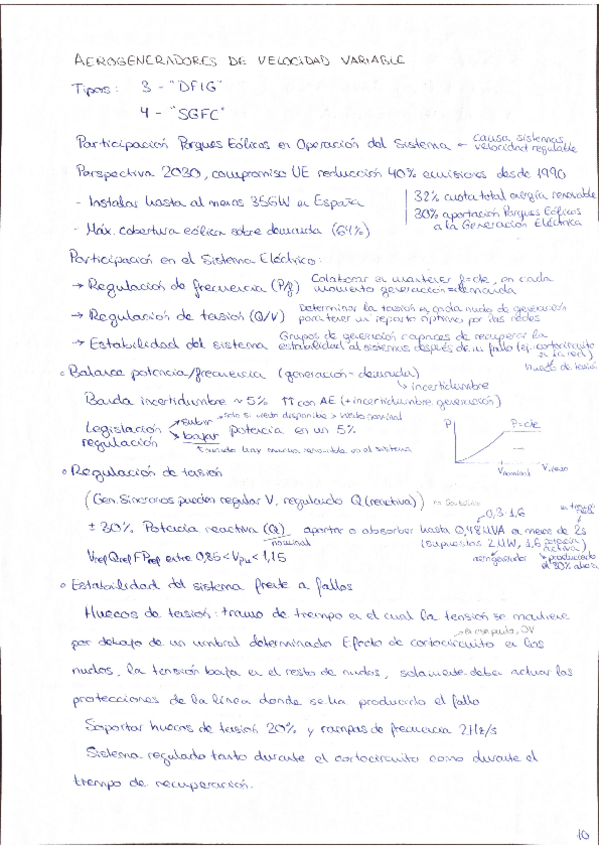 AEROGENERADORES DE VELOCIDAD VARIABLE
Tipos: 3 - "DFIG"
4 - "SGFC"
Participación Parques Eólicos en Operación del Sistema ← causa sistemas velocidad regulable
Perspectiva 2030, compromiso UE reducción 40% emisiones desde 1990
- Instalar hasta al menos 35GW en España
32% cuota total energía renovable
30% aportación Parques Eólicos a la Generación Eléctrica
- Máx. cobertura eólica sobre demanda (64%)
Participación en el Sistema Eléctrico:
→ Regulación de frecuencia (P/f) Colaborar en mantener f=cte, en cada momento generación=demanda
→ Regulación de tensión (Q/V) Determinar la tensión en cada nudo de generación para tener un reparto óptimo por las redes
→ Estabilidad del sistema Grupos de generación capaces de recuperar la estabilidad al sistema después de un fallo (ej. cortocircuito en la red)
Huecos de tensión
○ Balance potencia/frecuencia (generación-demanda)
↳ incertidumbre
Banda incertidumbre ~ 5% ↑↑ con AE (+incertidumbre generación)
Legislación regulación → subir → bajar potencia en un 5%
solo si viento disponible > viento nominal
cuando hay energía renovable en el sistema
P P=cte
Vnominal Vviento
○ Regulación de tensión
(Gen. Síncronos pueden regular V, regulando Q (reactiva))
± 30% Potencia reactiva (Q) aportar o absorber hasta 0,48MVA en menos de 2s
nominal
0,3·1,6
(supuestos 2MW, 1,6 potencia activa)
aerogenerador
produciendo el 80% ahora
Vref Qref FPref entre 0,85 < Vpu < 1,15
○ Estabilidad del sistema frente a fallos
Huecos de tensión: tramo de tiempo en el cual la tensión se mantiene
por debajo de un umbral determinado. Efecto de cortocircuito en los
nudos, la tensión baja en el resto de nudos, solamente deben actuar las
protecciones de la línea donde se ha producido el fallo
Soportar huecos de tensión 20% y rampas de frecuencia 2Hz/s
Sistema regulado tanto durante el cortocircuito como durante el
tiempo de recuperación.
10